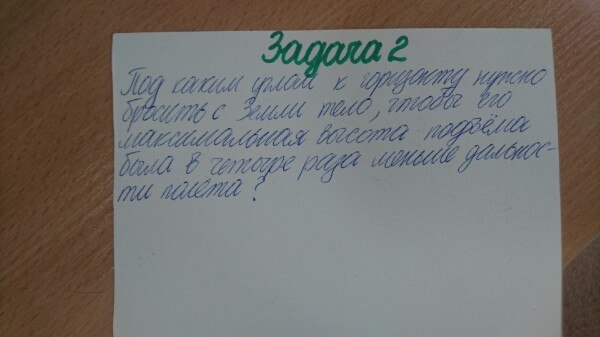 Задача 2
Под каким углом к горизонту нужно
бросить с Земли тело, чтобы его
максимальная высота подъёма
была в четыре раза меньше дальнос-
ти полёта?